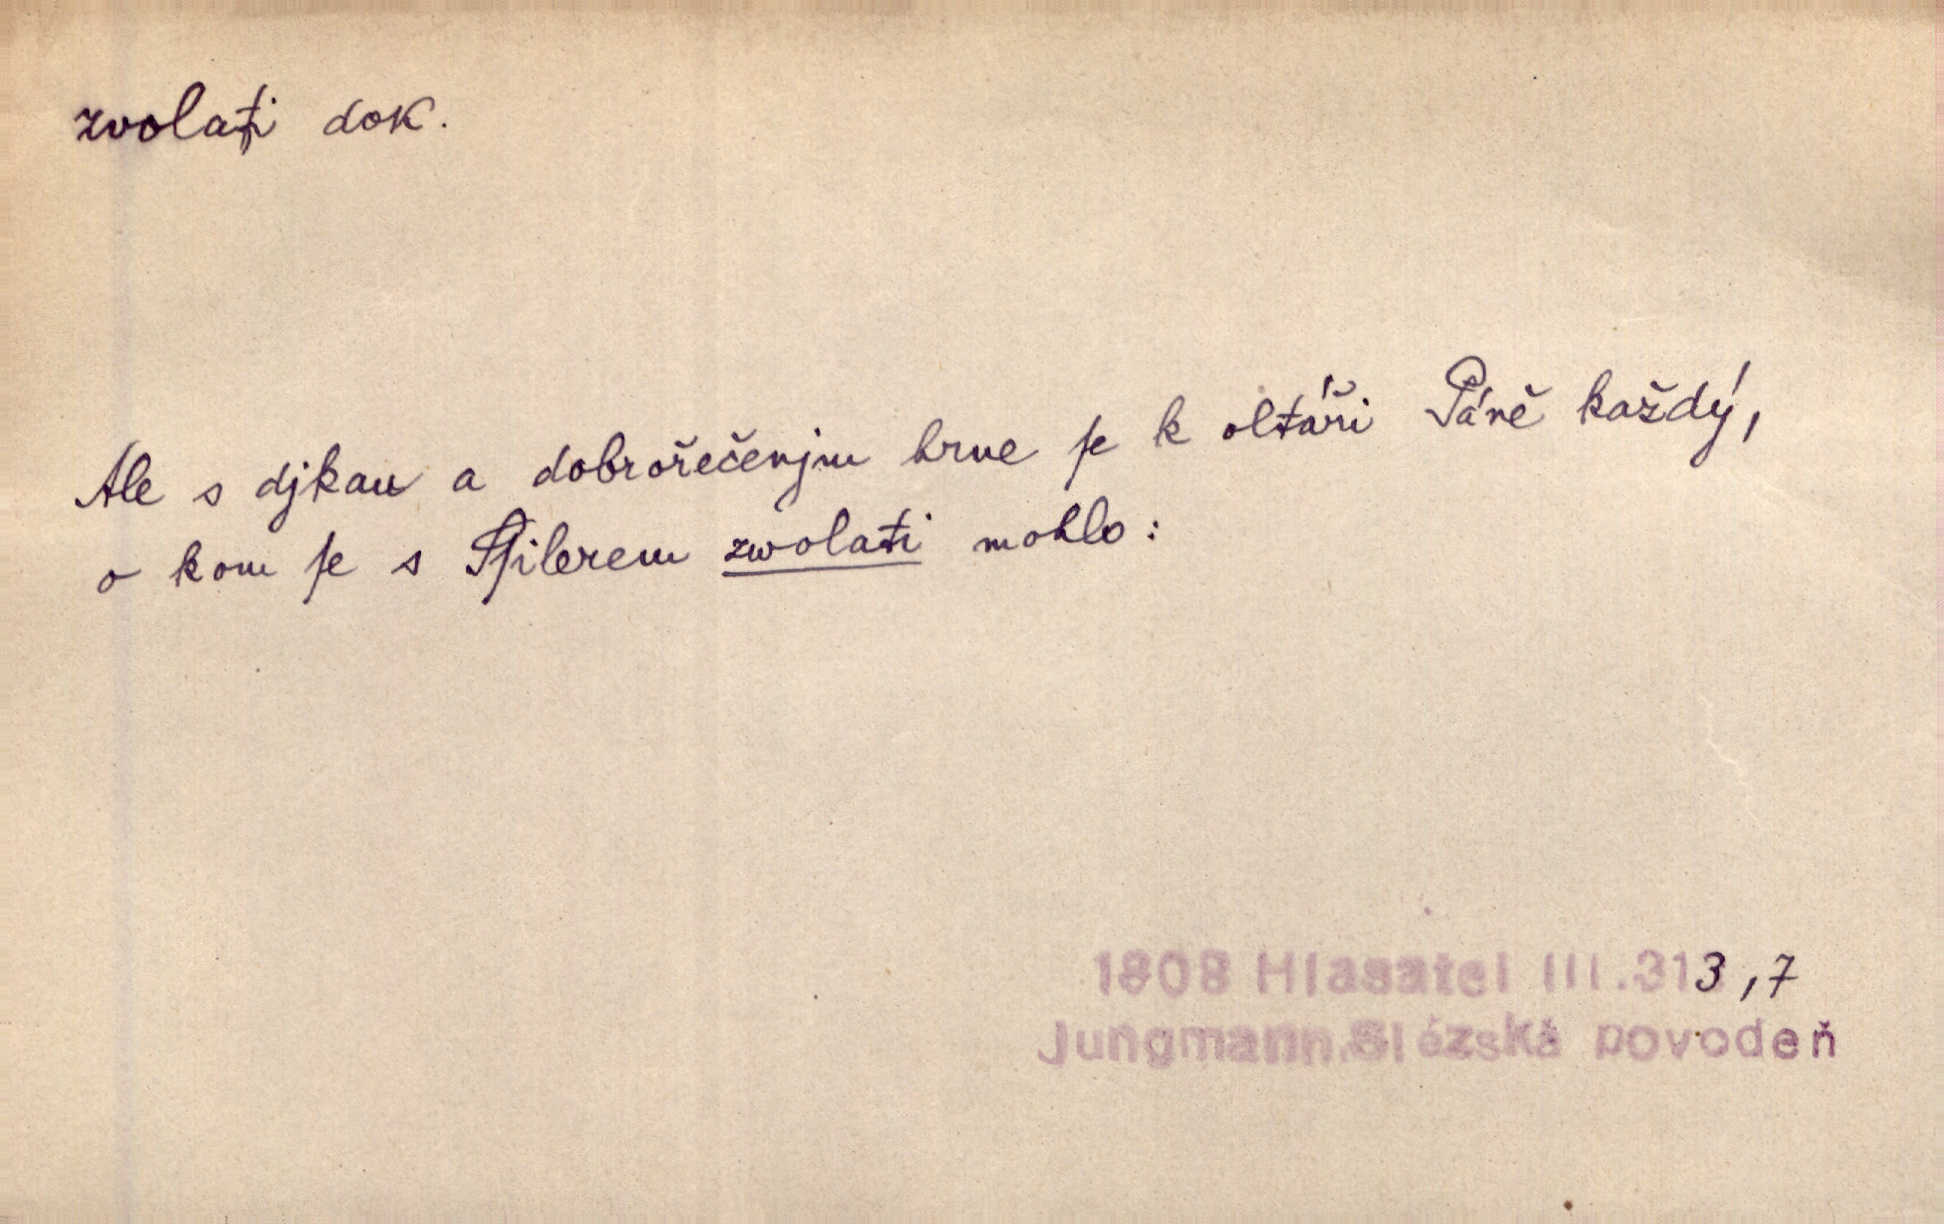 zvolati dok.
Ale s djkau a dobrořečenjm hrne se k oltáři Páně každý,
o kom se s Šilerem zwolati mohlo:
1808 Hlasatel III.313,7
Jungmann.Slézská povodeň